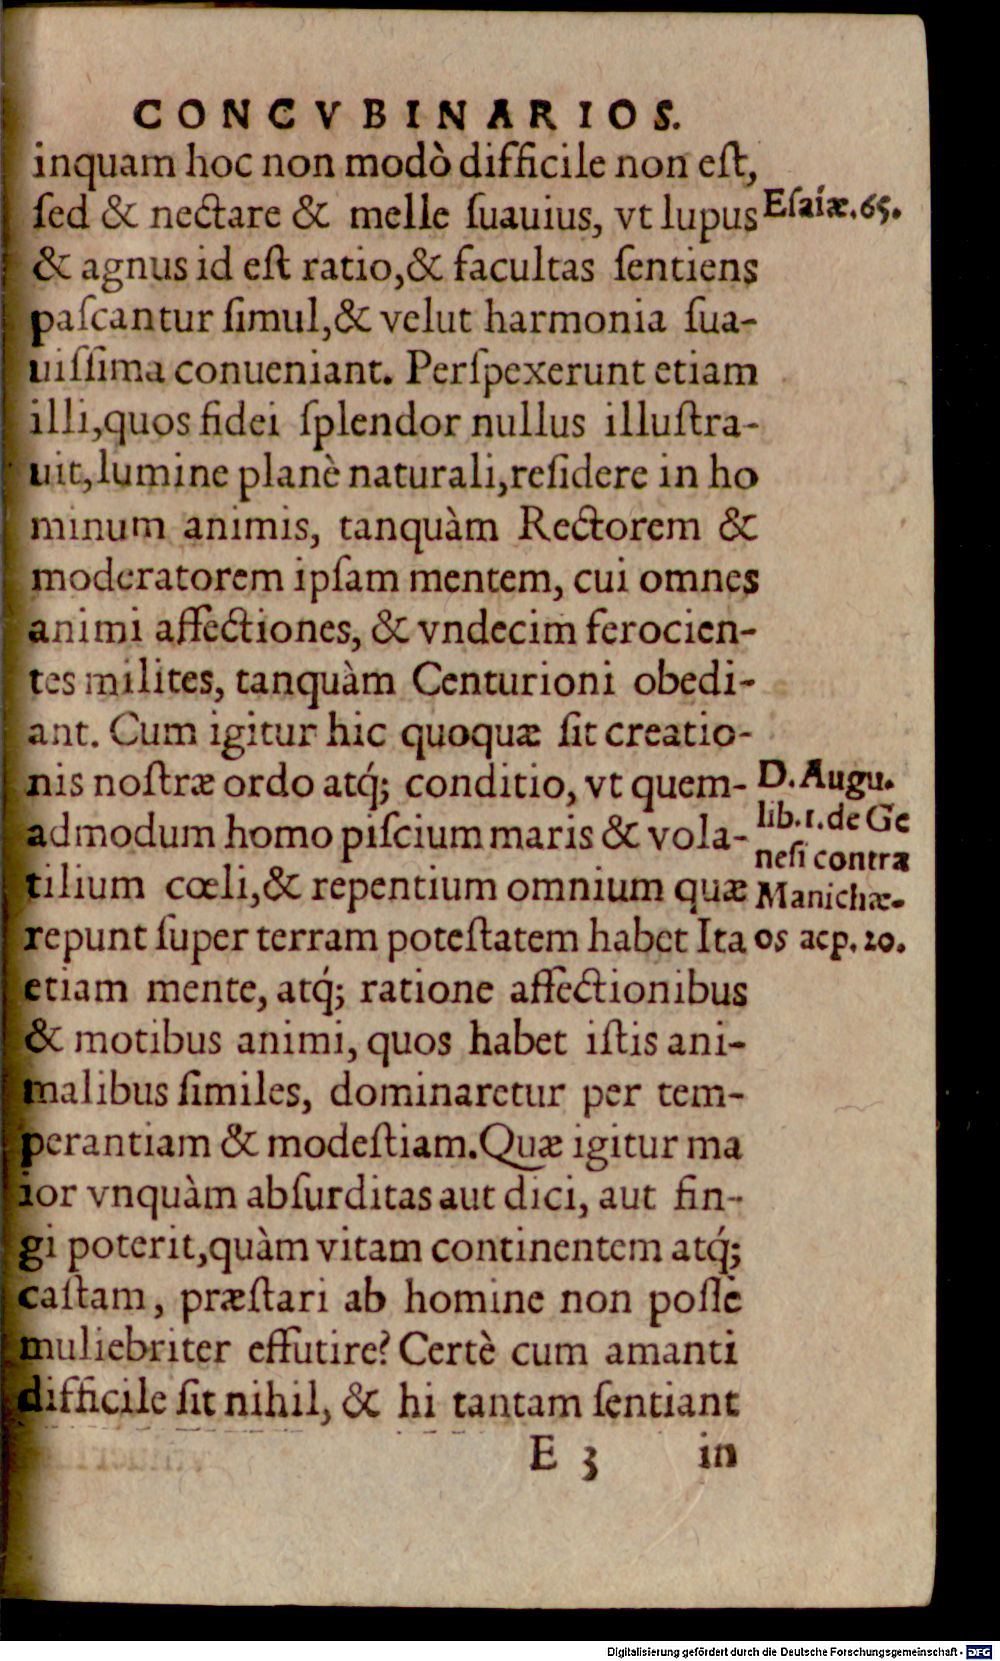 CONCVBINARIOS.
inquam hoc non modò difficile non eſt,
ſed & nectare & melle ſuauius, vt lupus
Eſaiæ.65.
& agnus id eſt ratio,& facultas ſentiens
paſcantur ſimul,& velut harmonia ſua-
uiſſima conueniant. Perſpexerunt etiam
illi,quos fidei ſplendor nullus illuſtra-
uit,lumine planè naturali,reſidere in ho
minum animis, tanquàm Rectorem &
moderatorem ipſam mentem, cui omnes
animi affectiones, & vndecim ferocien-
tes milites, tanquàm Centurioni obedi-
ant. Cum igitur hic quoquæ ſit creatio-
nis noſtræ ordo atq́; conditio, vt quem-
admodum homo piſcium maris & vola-
tilium cœli,& repentium omnium quæ
repunt ſuper terram poteſtatem habet Ita
D. Augu.
lib.1.de Ge
neſi contra
Manichæ-
os acp.20.
etiam mente, atq́; ratione affectionibus
& motibus animi, quos habet iſtis ani-
malibus ſimiles, dominaretur per tem-
perantiam & modeſtiam.Quæ igitur ma
ior vnquàm abſurditas aut dici, aut fin-
gi poterit,quàm vitam continentem atq́;
caſtam, præſtari ab homine non poſſe
muliebriter effutire? Certè cum amanti
difficile ſit nihil, & hi tantam ſentiant
E 3 in
Digitalisierung gefördert durch die Deutsche Forschungsgemeinschaft - DFG